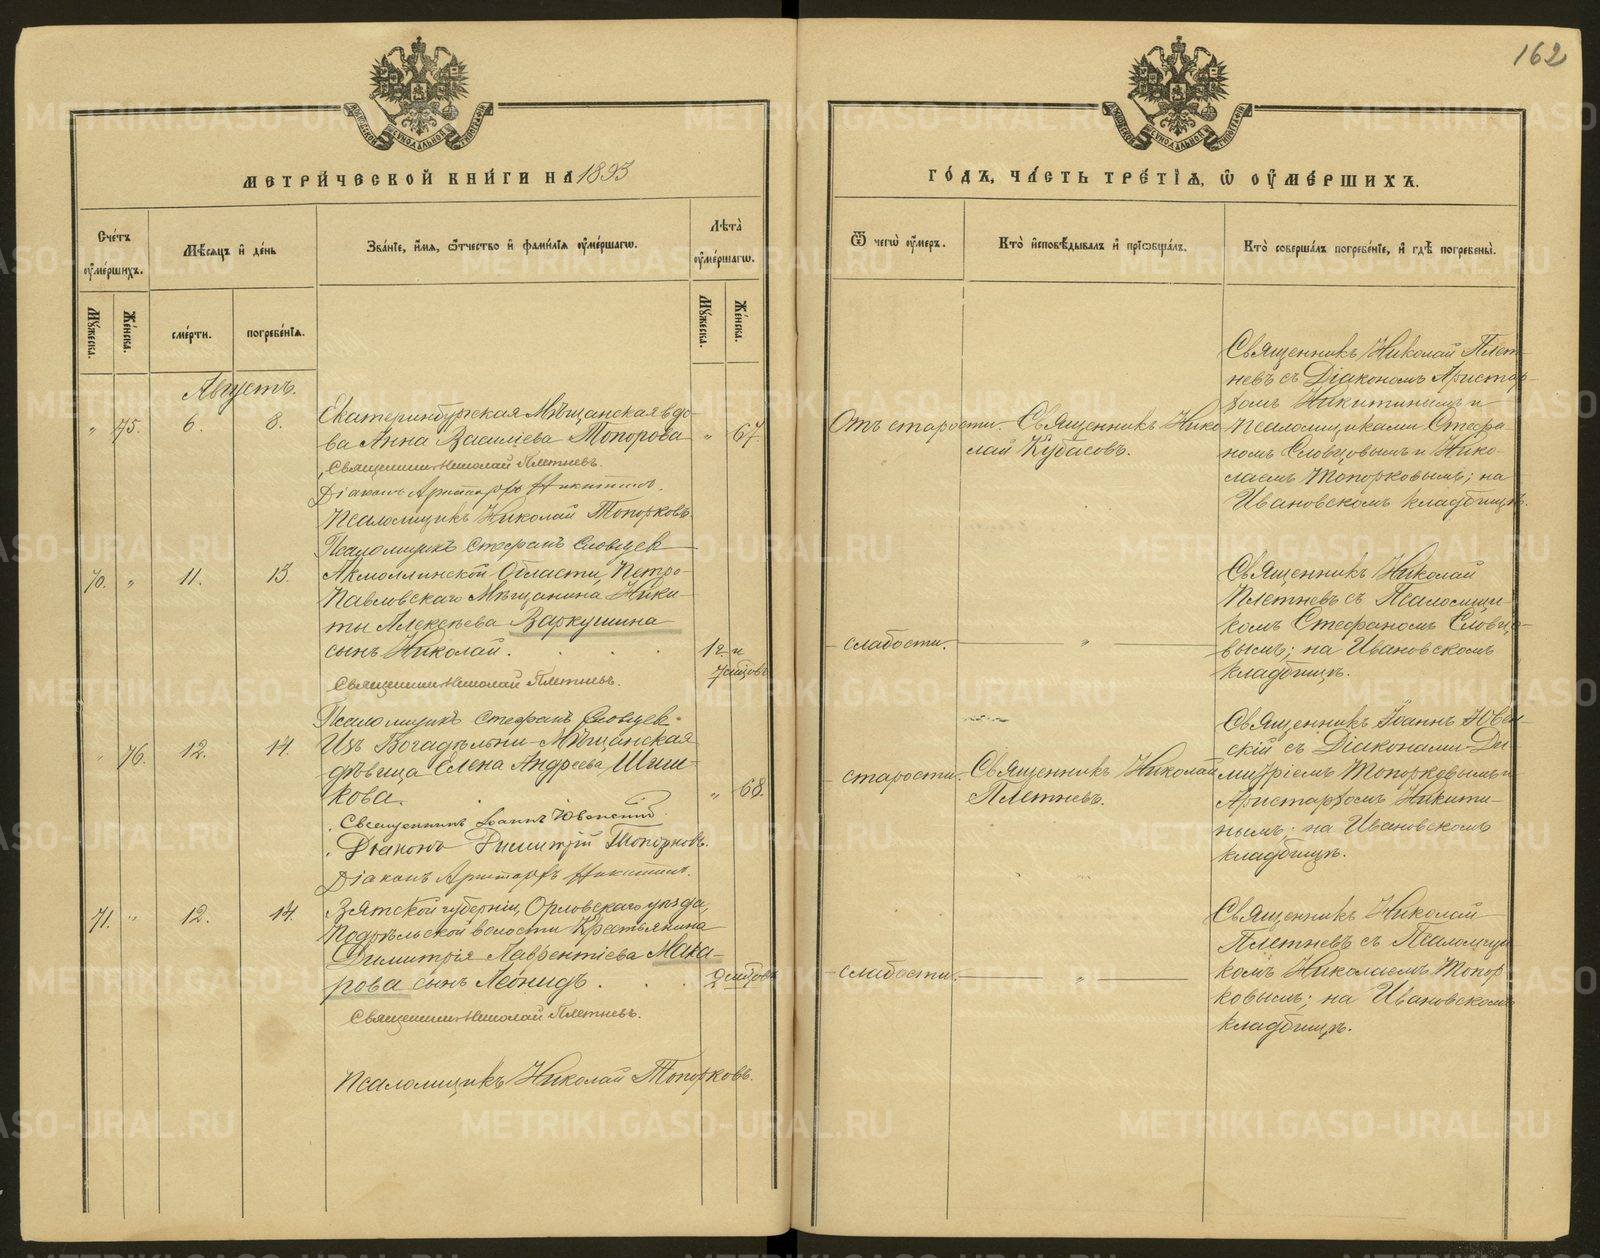 162
МЕТРИЧЕСКОЙ КНИГИ НА 1893
ГОДЪ, ЧАСТЬ ТРЕТІЯ, Ѿ ОУМЕРШИХЪ.
Счетъ оумершихъ.
Мѣсяцъ и день
Званіе, имя, ѿтчество и фамилія оумершагѡ.
Лѣта оумершагѡ.
Мꙋжеска.
Женска.
смерти.
погребенія.
Мꙋжеска.
Женска.
Ѿ чегѡ оумеръ.
Кто исповѣдывалъ и пріобщалъ.
Кто совершалъ погребеніе, и гдѣ погребены.
Августъ.
" 75. 6. 8.
Екатеринбургская Мѣщанская вдо-
ва Анна Василіева Топорова " 67.
Священникъ Николай Плетневъ.
Діаконъ Аристархъ Никитинъ.
Псаломщикъ Николай Топорковъ.
Псаломщикъ Стефанъ Словцев
Отъ старости.
Священникъ Нико
лай Кубасовъ.
Священникъ Николай Плет-
невъ съ Діакономъ Аристар-
хомъ Никитинымъ и
Псаломщиками Стефа
номъ Словцовымъ и Нико-
лаемъ Топорковымъ; на
Ивановскомъ кладбищѣ.
70. " 11. 13.
Акмоллинской Области, Петро-
павловскаго Мѣщанина Ники-
ты Алексѣева Варкушина
сынъ Николай. 1 г. и
7 мѣсцовъ
Священникъ Николай Плетневъ.
Псаломщикъ Стефанъ Словцев
слабости. "
Священникъ Николай
Плетневъ съ Псаломщи
комъ Стефаномъ Словцо-
вымъ; на Ивановскомъ
кладбищѣ.
" 76. 12. 14.
Изъ Богадѣльни Мѣщанская
дѣвица Елена Андреева Шиши-
кова. " 68.
Священникъ Іоаннъ Ювенскій
Діаконъ Димитрій Топорковъ.
Діаконъ Аристархъ Никитинъ.
старости.
Священникъ Николай
Плетневъ.
Священникъ Іоаннъ Ювен-
скій съ Діаконами Ди-
митріемъ Топорковымъ и
Аристархомъ Никити-
нымъ; на Ивановскомъ
кладбищѣ.
71. " 12. 14.
Вятской губерніи, Орловскаго уѣзда,
Подрѣльской волости Крестьянина
Димитрія Лаврентіева Мака-
рова сынъ Леонидъ. 2 мѣсцовъ
Священникъ Николай Плетневъ.
Псаломщикъ Николай Топорковъ.
слабости. "
Священникъ Николай
Плетневъ съ Псаломщи
комъ Николаемъ Топор
ковымъ; на Ивановскомъ
кладбищѣ.
METRIKI.GASO-URAL.RU